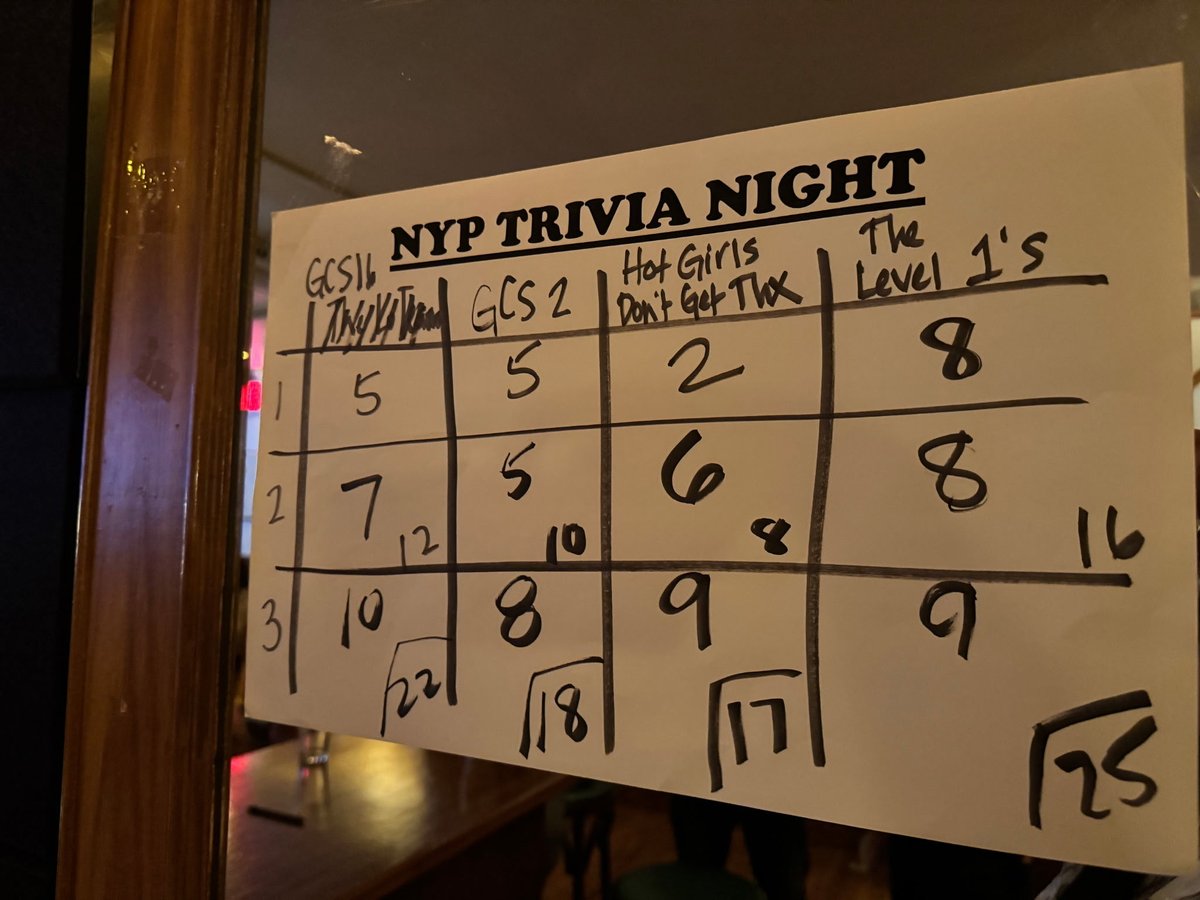 NYP TRIVIA NIGHT
GCS16 GCS 2 Hot Girls Don't Get Thx The Level 1's
1 5 5 2 8
2 7 5 6 8
12 10 8 16
3 10 8 9 9
22 18 17 25